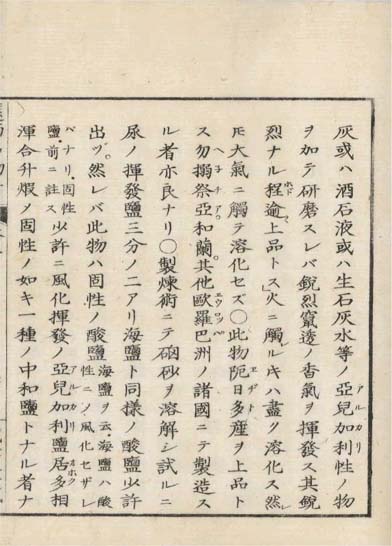 灰或ハ酒石液或ハ生石灰水等ノ亞兒加利性ノ物
アルカリ
ヲ加テ研磨スレバ鋭烈竄透ノ香氣ヲ揮發ス其鋭
烈ナル程逾上品トス」火ニ觸ルヽキハ盡ク溶化ス然
ホド
𪜈大氣ニ觸テ溶化セズ〇此物阨日多産ヲ上品ト
エヂト
ス勿搦祭亞和蘭。其他歐羅巴洲ノ諸國ニテ製造ス
ヘ子チア。
エウロッパ
ル者亦良ナリ〇製煉術ニテ硇砂ヲ溶解シ試ルニ
尿ノ揮發鹽三分ノ二アリ海鹽ト同様ノ酸鹽少許
出ヅ然レバ此物ハ固性ノ酸鹽 海鹽ヲ云海鹽ハ酸
性ニノ風化セザレ
バナリ。固性
鹽。前ニ註ス 少許ニ風化揮發ノ亞兒加利鹽居多相
アルカリ
オホク
渾合升煆ノ固性ノ如キ一種ノ中和鹽トナル者ナ